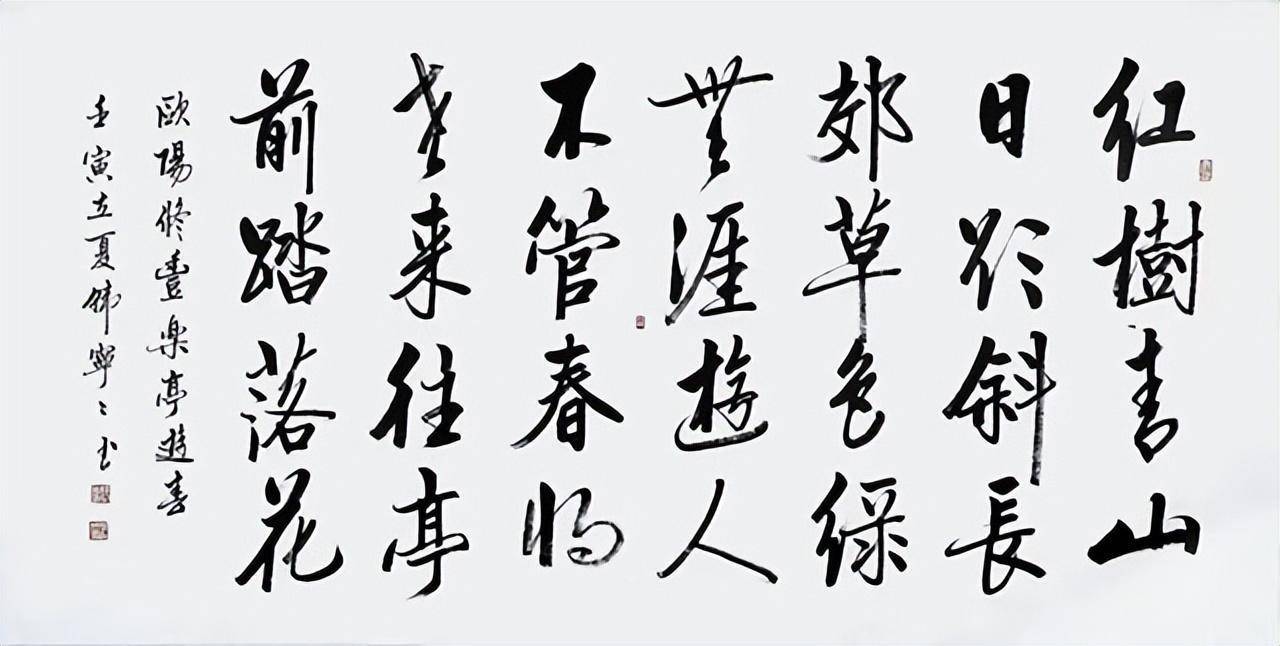 紅樹青山
日欲斜長
郊草色綠
無涯遊人
不管春將
老来往亭
前踏落花
歐陽修豐楽亭遊春
壬寅立夏韩寧〻书